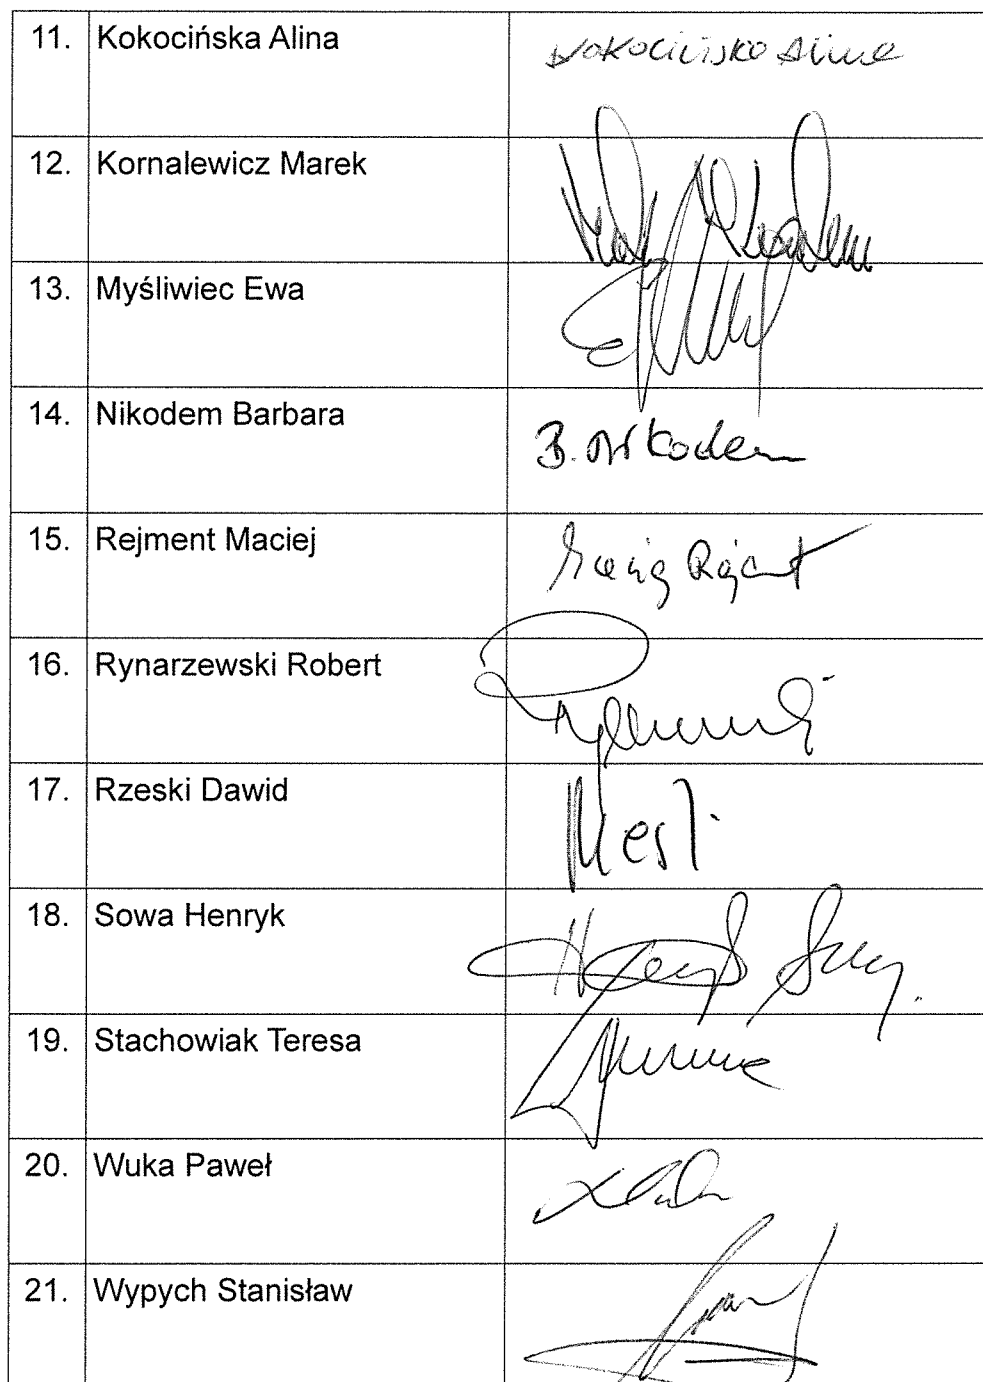 11. Kokocińska Alina Kokocińska Alina
12. Kornalewicz Marek
13. Myśliwiec Ewa
14. Nikodem Barbara B. Nikodem
15. Rejment Maciej Maciej Rejment
16. Rynarzewski Robert
17. Rzeski Dawid
18. Sowa Henryk
19. Stachowiak Teresa
20. Wuka Paweł
21. Wypych Stanisław